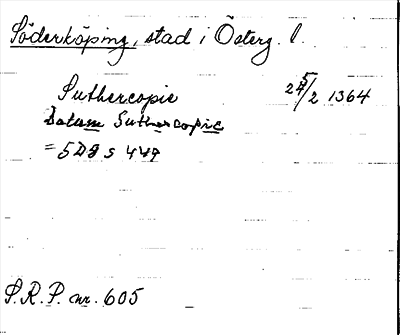 Söderköping, stad i Österg. l.
Suthercopie 25/2 1364
Datum Suthercopie
= SDg s 449
S.R.P. nr. 605